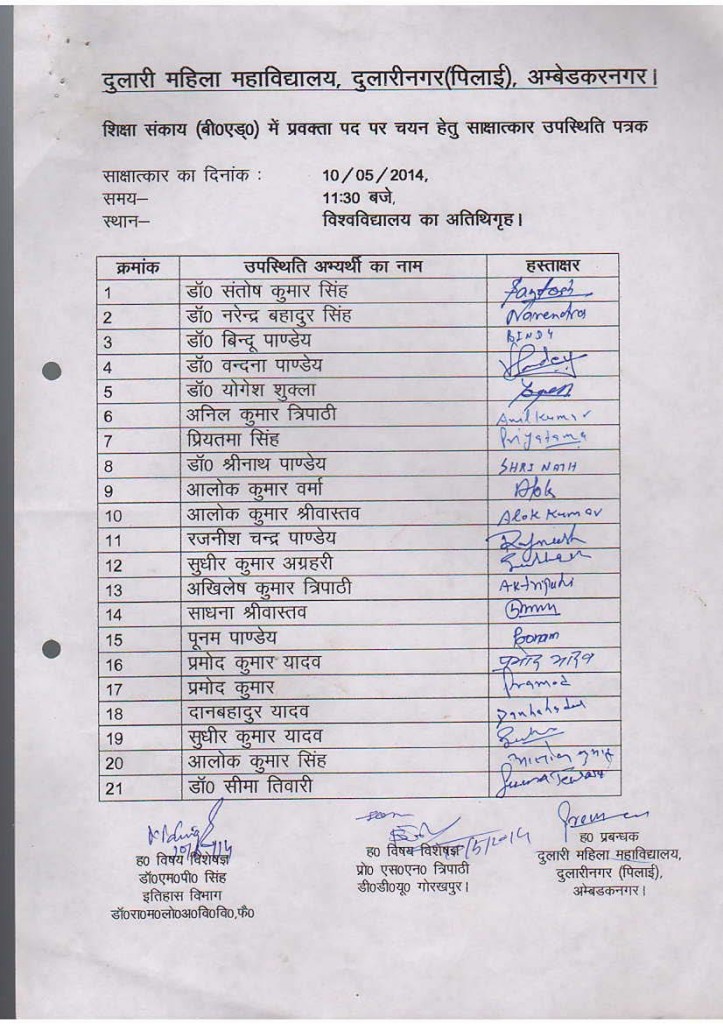 दुलारी महिला महाविद्यालय, दुलारीनगर(पिलाई), अम्बेडकरनगर।
शिक्षा संकाय (बी०एड्०) में प्रवक्ता पद पर चयन हेतु साक्षात्कार उपस्थिति पत्रक
साक्षात्कार का दिनांक : 10/05/2014,
समय– 11:30 बजे,
स्थान– विश्वविद्यालय का अतिथिगृह।
क्रमांक उपस्थिति अभ्यर्थी का नाम हस्ताक्षर
1 डॉ० संतोष कुमार सिंह Santosh
2 डॉ० नरेन्द्र बहादुर सिंह Narendra
3 डॉ० बिन्दू पाण्डेय BINDU
4 डॉ० वन्दना पाण्डेय
5 डॉ० योगेश शुक्ला
6 अनिल कुमार त्रिपाठी Anil Kumar
7 प्रियतमा सिंह Priyatama
8 डॉ० श्रीनाथ पाण्डेय SHRI NATH
9 आलोक कुमार वर्मा Alok
10 आलोक कुमार श्रीवास्तव Alok Kumar
11 रजनीश चन्द्र पाण्डेय Rajneesh
12 सुधीर कुमार अग्रहरी
13 अखिलेष कुमार त्रिपाठी AKtripathi
14 साधना श्रीवास्तव
15 पूनम पाण्डेय Poonam
16 प्रमोद कुमार यादव प्रमोद यादव
17 प्रमोद कुमार Pramod
18 दानबहादुर यादव Danbahadur
19 सुधीर कुमार यादव
20 आलोक कुमार सिंह आलोक कुमार
21 डॉ० सीमा तिवारी Seema Tiwari
ह० विषय विशेषज्ञ
डॉ०एम०पी० सिंह
इतिहास विभाग
डॉ०रा०म०लो०अ०वि०वि०,फै०
ह० विषय विशेषज्ञ
प्रो० एस०एन० त्रिपाठी
डी०डी०यू० गोरखपुर।
ह० प्रबन्धक
दुलारी महिला महाविद्यालय,
दुलारीनगर (पिलाई),
अम्बेडकनगर।